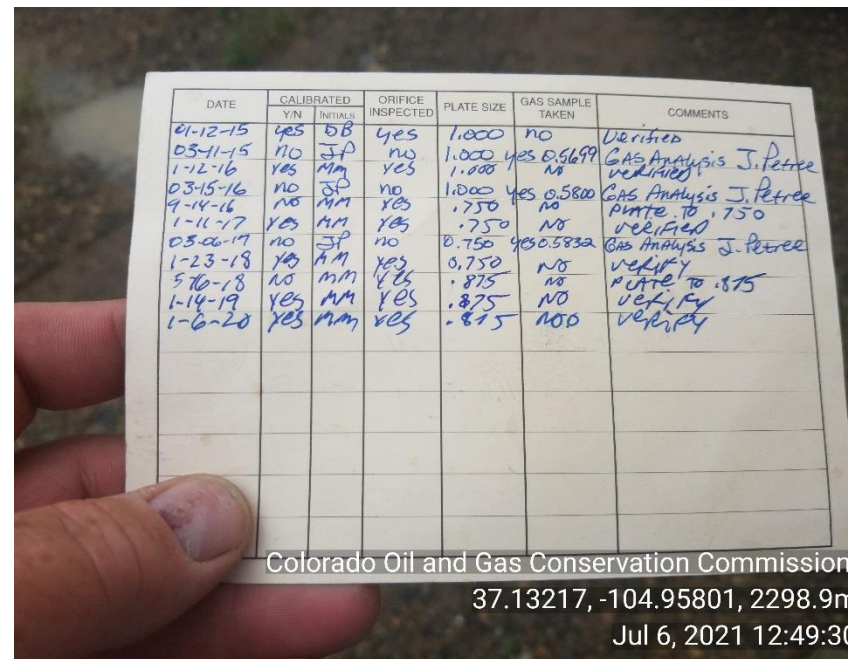 DATE CALIBRATED ORIFICE INSPECTED PLATE SIZE GAS SAMPLE TAKEN COMMENTS
Y/N INITIALS
01-12-15 yes DB yes 1.000 no Verified
03-11-15 no JP no 1.000 yes 0.5699 GAS Analysis J. Petree
1-12-16 Yes MM Yes 1.000 NO verified
03-15-16 no JP no 1.000 yes 0.5800 GAS Analysis J. Petree
9-14-16 NO MM Yes .750 NO PLATE TO .750
1-11-17 Yes MM Yes .750 NO verified
03-06-17 no JP no 0.750 yes 0.5832 GAS Analysis J. Petree
1-23-18 Yes MM Yes 0.750 NO verify
NO MM Yes .875 NO PLATE TO .875
1-14-19 Yes MM Yes .875 NO verify
1-6-20 Yes MM Yes .875 NOO verify
Colorado Oil and Gas Conservation Commission
37.13217, -104.95801, 2298.9m
Jul 6, 2021 12:49:30